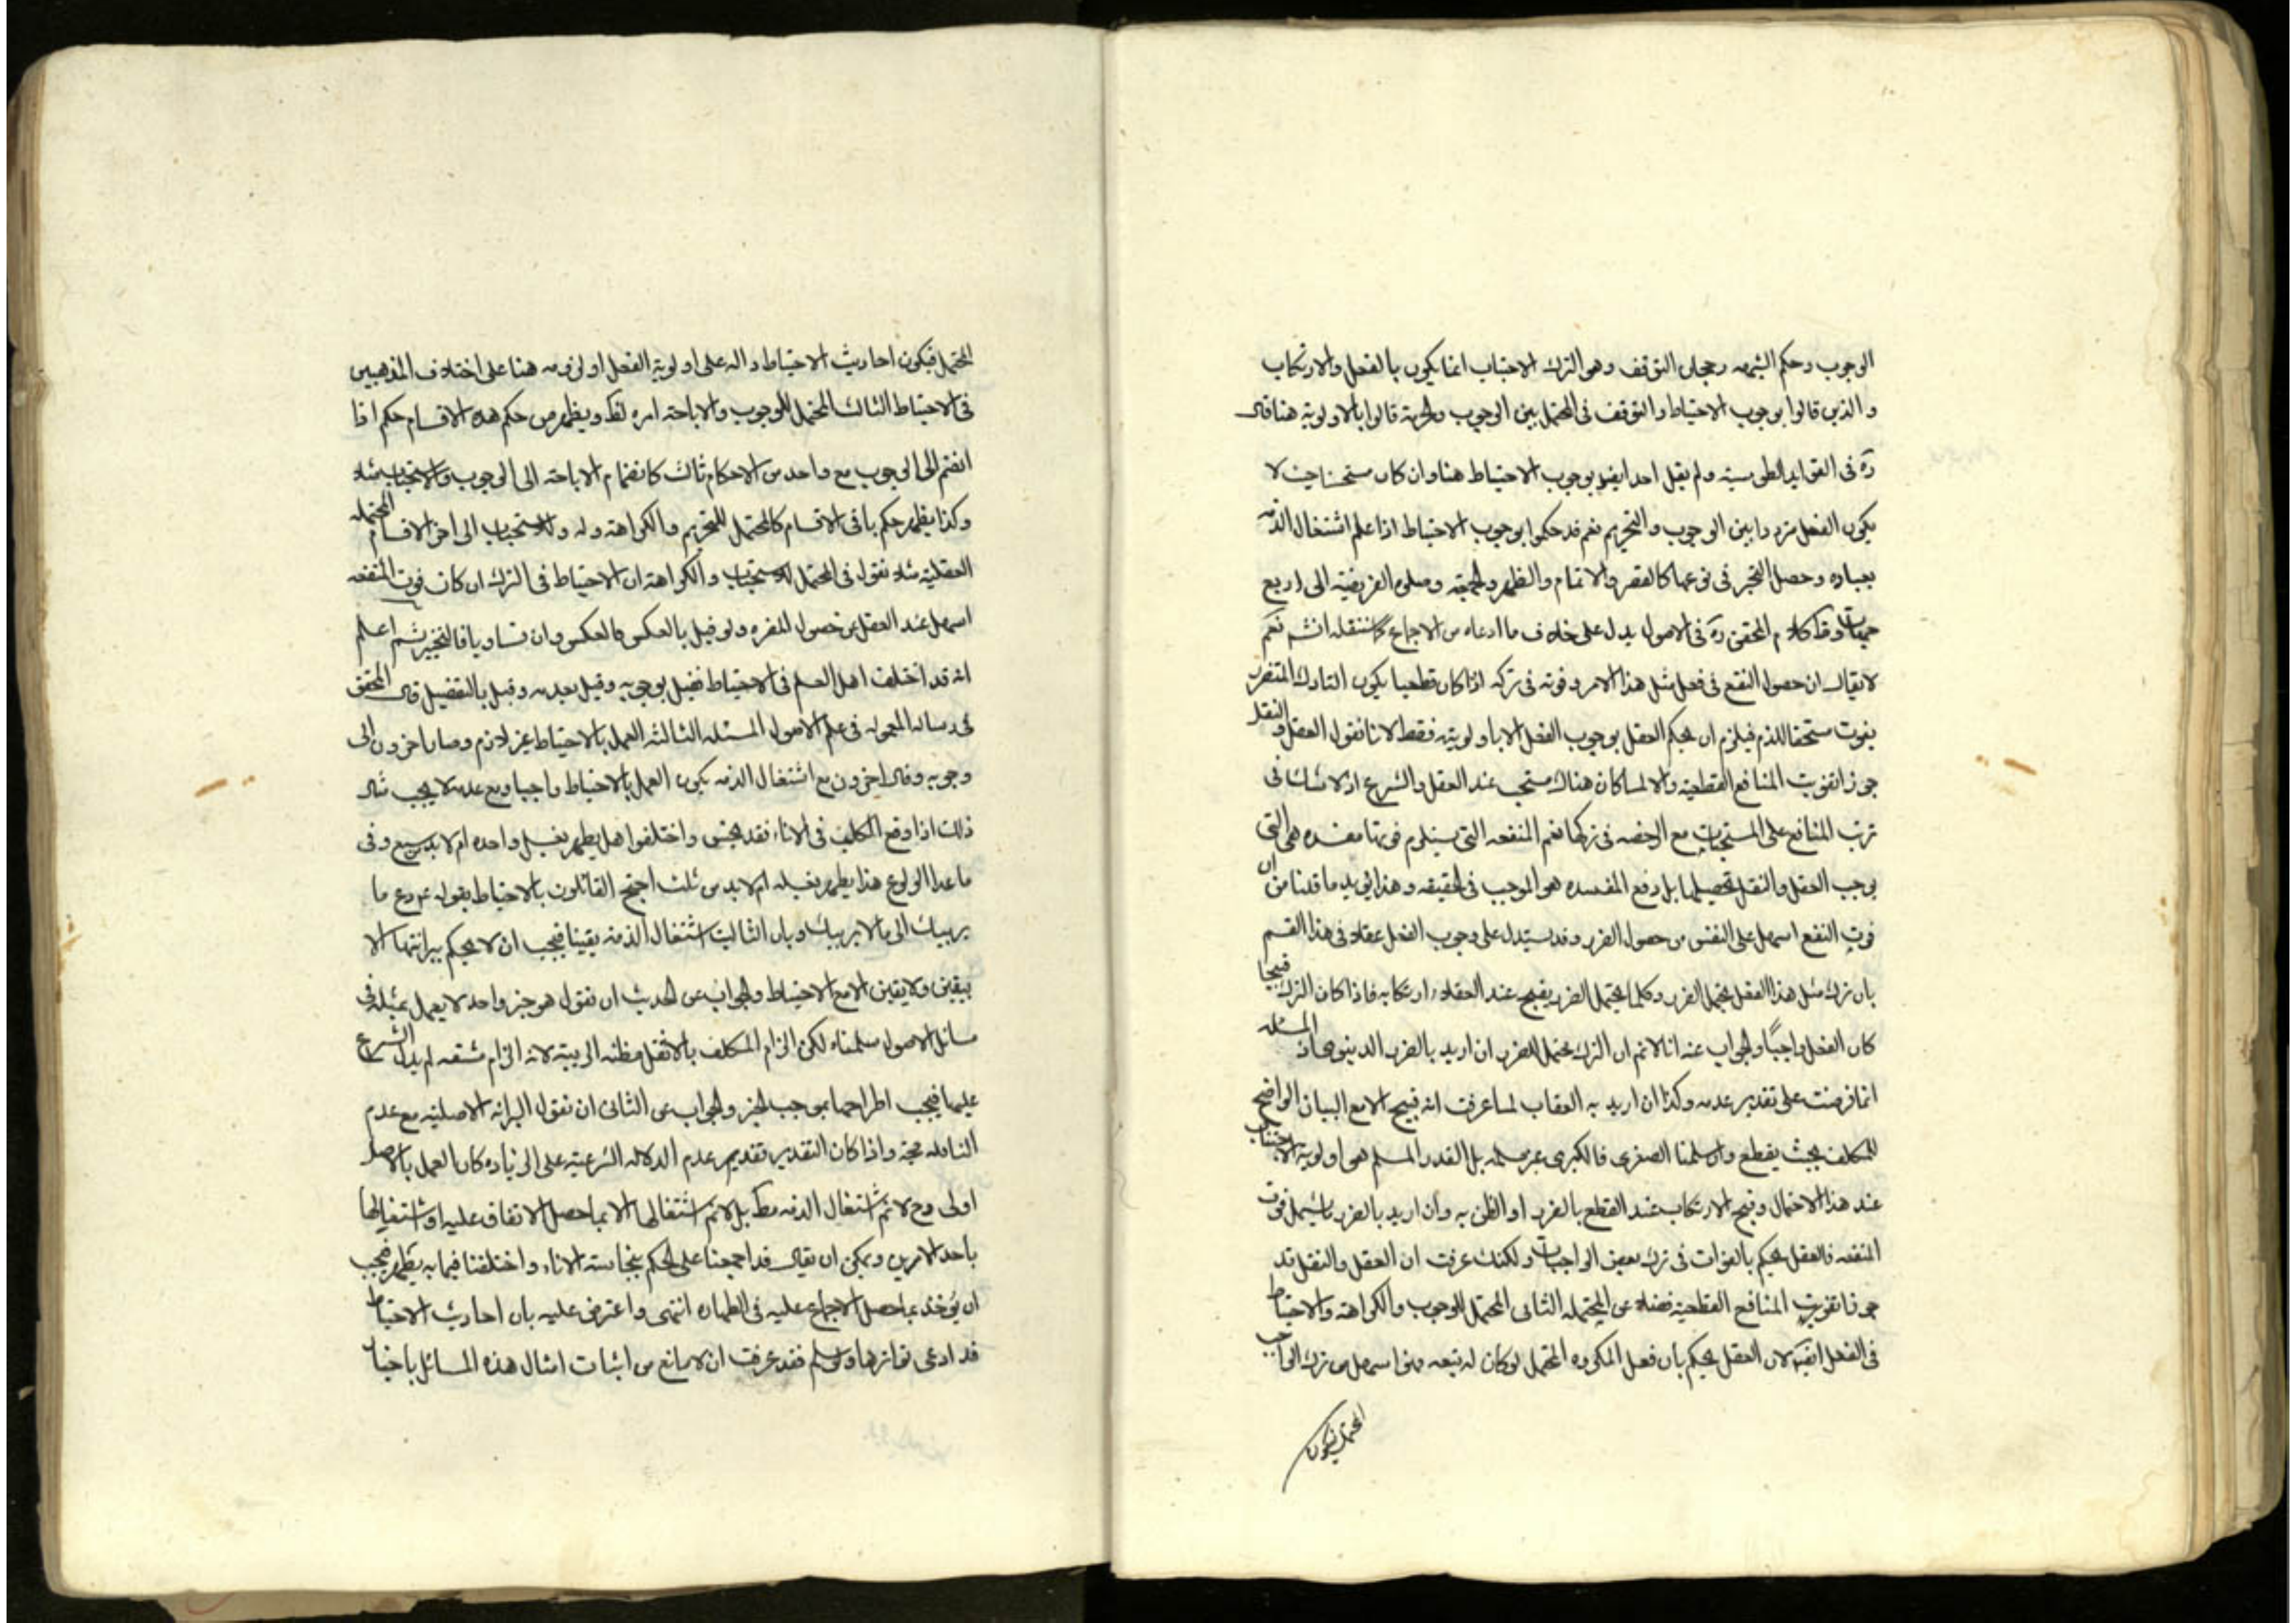 الوجوب وحكم الشبهه رجحان التوقف وهو الترك الاجتناب انما يكون بالفعل والارتكاب
والذين قالوا بوجوب الاحتياط والتوقف فى المحتمل بين الوجوب والحرمة قالوا بالاولوية هنا قال
ره فى الفوايد الطوسيه ولم يقل احد ايضا بوجوب الاحتياط هنا وان كان مستحسنا حيث لا
يكون الفعل مرددا بين الوجوب والتحريم نعم قد حكموا بوجوب الاحتياط اذا علم اشتغال الذمه
بعباده وحصل التحير فى نوعها كالقصر والاتمام والظهر والجمعة وصلوة الفريضة الى اربع
جهات وظ كلام المحقق ره فى الاصول يدل على خلاف ما ادعاه من الاجماع كما سننقله انشم نعم
لا يقال ان حصول النفع فى فعل مثل هذا الامر وفوته فى تركه اذا كان قطعيا يكون التارك المتضرر
بفوت مستحقا للذم فيلزم ان يحكم العقل بوجوب الفعل لا باولويته فقط لانا نقول العقل والنقل
جوزا تفويت المنافع القطعية والا لما كان هناك مستحب عند العقل والشرع اذ لا شك فى
ترتب المنافع على المستحبات مع الرخصه فى تركها نعم المنفعه التى يستلزم فوتها مفسده هى التى
يوجب العقل والنقل تحصيلها بل دفع المفسده هو الموجب فى الحقيقه وهذا يويد ما قلنا من ان
فوت النفع اسهل على النفس من حصول الضرر وقد يستدل على وجوب الفعل عقلا فى هذا القسم
بان ترك مثل هذا الفعل يحتمل الضرر وكلما يحتمل الضرر يقبح عند العقلاء ارتكابه فاذا كان الترك قبيحا
كان الفعل واجبًا والجواب عنه انا لانم ان الترك محتمل للضرر ان اريد بالضرر الدنيوى اذ المسئله
انما فرضت على تقدير عدمه وكذا ان اريد به العقاب لما عرفت انه قبيح الا مع البيان الواضح
للمكلف بحيث يقطع وان سلمنا الصغرى فالكبرى غير مسلمه بل القدر المسلم هى اولوية الاجتناب
عند هذا الاحتمال وقبح الارتكاب عند القطع بالضرر او الظن به وان اريد بالضرر ما يشمل فوت
المنفعه فالعقل يحكم بالفوات فى ترك بعض الواجبات ولكنك عرفت ان العقل والنقل قد
جوزا تفويت المنافع القطعية فضلا عن المحتمله الثانى المحتمل للوجوب والكراهة والاحتياط
فى الفعل ايضا لان العقل يحكم بان فعل المكروه المحتمل لو كان له تبعه فهو اسهل من ترك الواجب
المحتمل فيكون
المحتمل فيكون احاديث الاحتياط داله على اولوية الفعل او لزومه هنا على اختلاف المذهبين
فى الاحتياط الثالث المحتمل للوجوب والاباحة امره لظ ويظهر من حكم هذه الاقسام حكم اذا
انضم الى الوجوب مع واحد من الاحكام ثالث كانضمام الاباحة الى الوجوب والاستحباب مثلا
وكذا يظهر حكم باقى الاقسام كالمحتمل للتحريم والكراهة وله وللاستحباب الى اخر الاقسام المحتمله
العقلية مثلا نقول فى المحتمل للاستحباب والكراهة ان الاحتياط فى الترك ان كان فوت المنفعه
اسهل عند العقل من حصول المضره ولو قيل بالعكس فالعكس وان تساويا فالتخيير ثم اعلم
انه قد اختلف اهل العلم فى الاحتياط فقيل بوجوبه وقيل بعدمه وقيل بالتفصيل قال المحقق
فى رساله المعموله فى علم الاصول المسئله الثالثة العمل بالاحتياط غير لازم وصار اخرون الى
وجوبه وقال اخرون مع اشتغال الذمه يكون العمل بالاحتياط واجبا ومع عدمه لا يجب مثال
ذلك اذا ولغ الكلب فى الاناء فقد نجس واختلفوا هل يطهر بغسل واحده ام لا بد من سبع وفى
ما عدا الولوغ هذا يطهر بغسله ام لا بد من ثلث احتج القائلون بالاحتياط بقوله ع دع ما
يريبك الى ما لا يريبك وبان الثابت اشتغال الذمه يقينا فيجب ان لا يحكم ببرائتها الا
بيقين ولا يقين الا مع الاحتياط والجواب عن الحديث ان نقول هو خبر واحد لا يعمل بمثله فى
مسائل الاصول سلمناه لكن الزام المكلف بالاثقل مظنه الريبة لانه الزام مشقه لم يدل الشرع
عليها فيجب اطراحها بموجب الخبر والجواب عن الثانى ان نقول البرائه الاصلية مع عدم
الناقله حجة واذا كان التقدير تقديم عدم الدلاله الشرعية على الزياده كان العمل بالاصل
اولى وح لانم اشتغال الذمه مط بل لانم اشتغالها الا بما حصل الاتفاق عليه او اشتغالها
باحد الامرين ويمكن ان يقال قد اجمعنا على الحكم بنجاسة الاناء واختلفنا فيما به يطهر فيجب
ان يؤخذ بما حصل الاجماع عليه فى الطهاره انتهى واعترض عليه بان احاديث الاحتياط
قد ادعى تواترها ولو سلم فقد عرفت ان لا مانع من اثبات امثال هذه المسائل باخبار